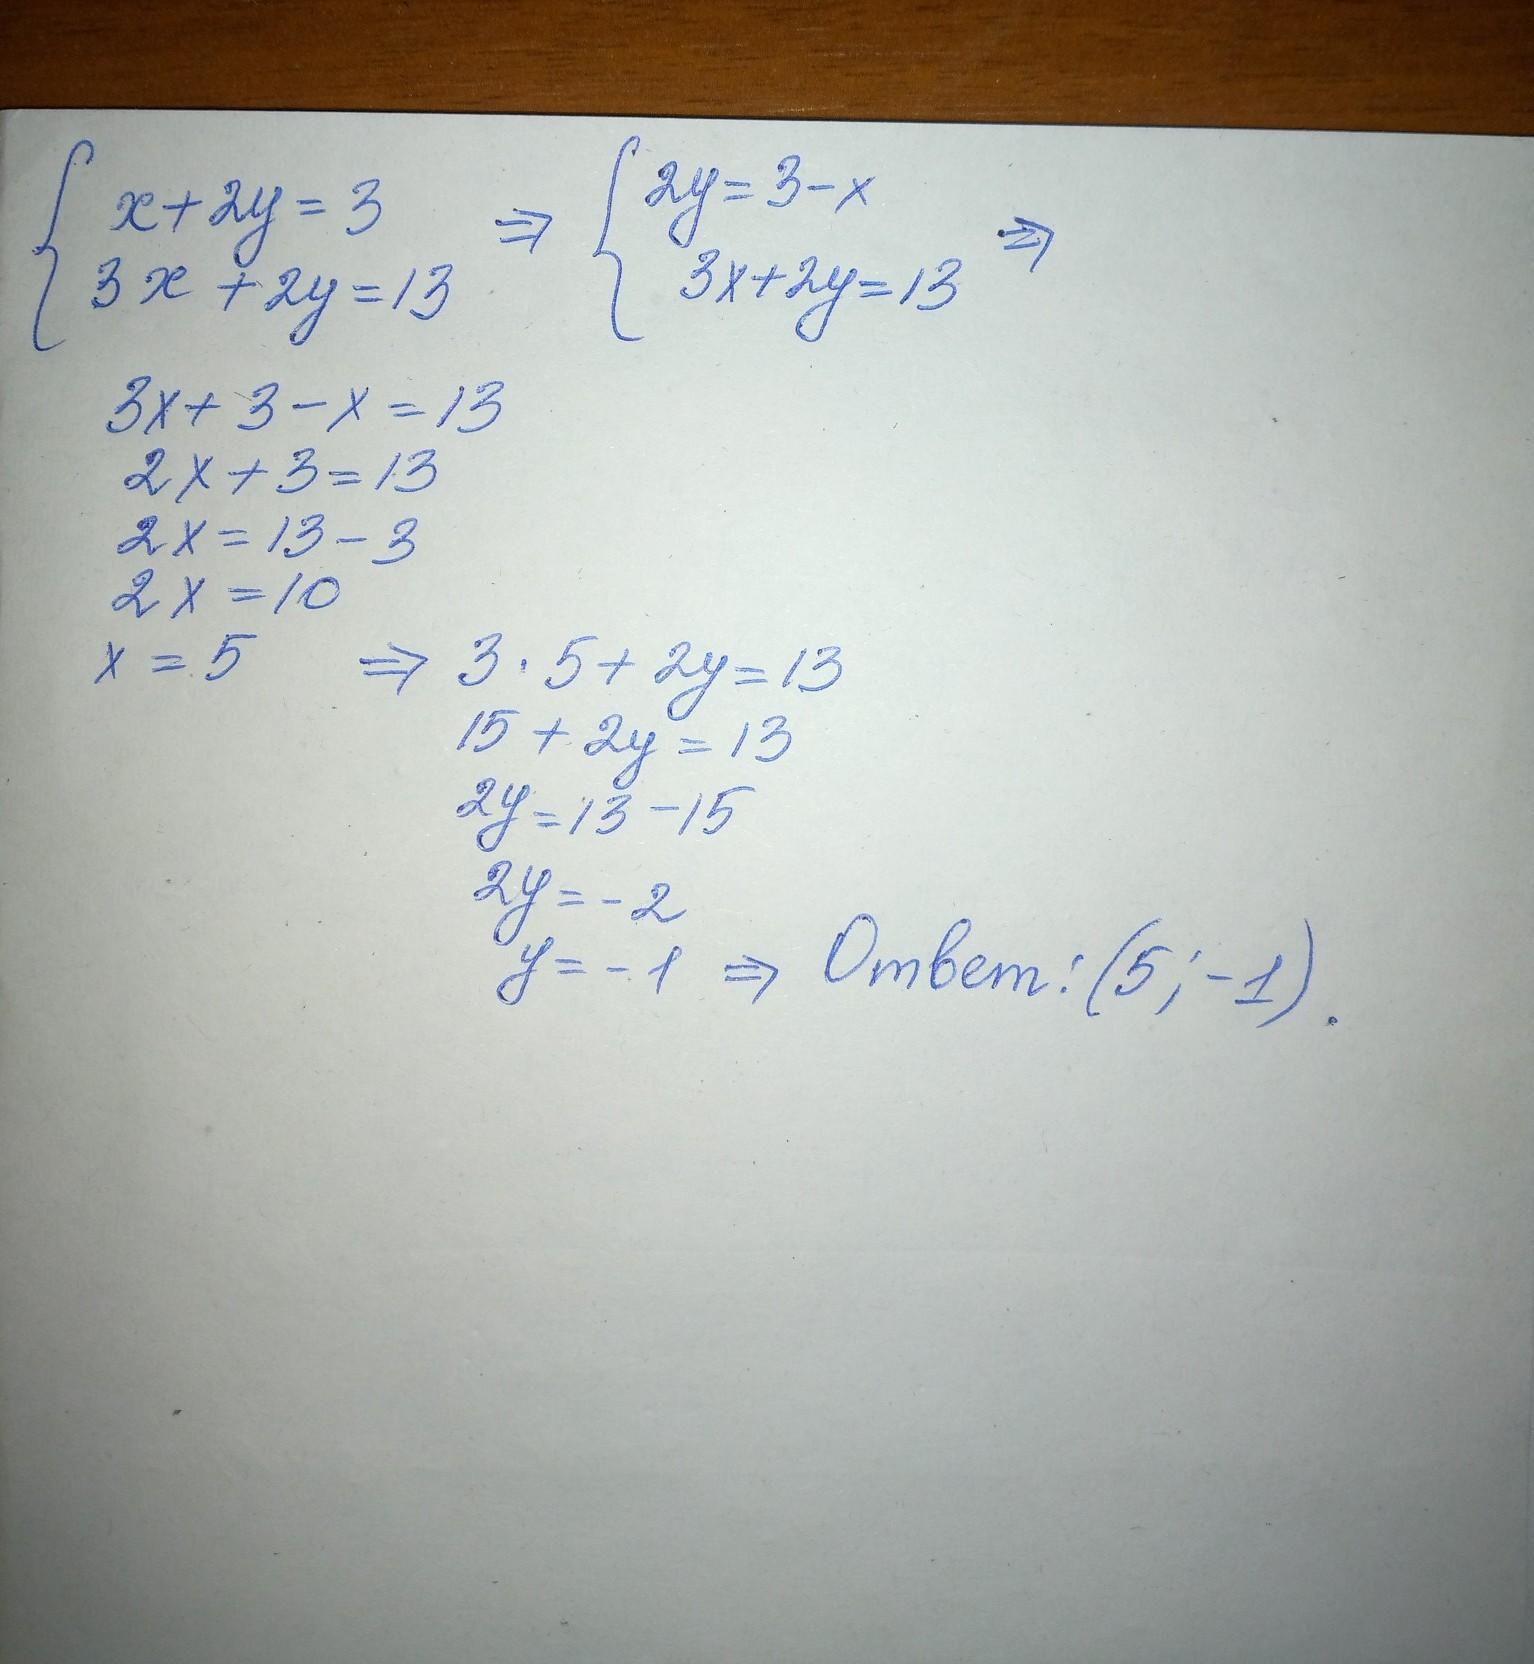 { x+2y=3 ⇒ { 2y=3-x ⇒
3x+2y=13 3x+2y=13
3x+3-x=13
2x+3=13
2x=13-3
2x=10
x=5 ⇒ 3·5+2y=13
15+2y=13
2y=13-15
2y=-2
y=-1 ⇒ Ответ: (5;-1).